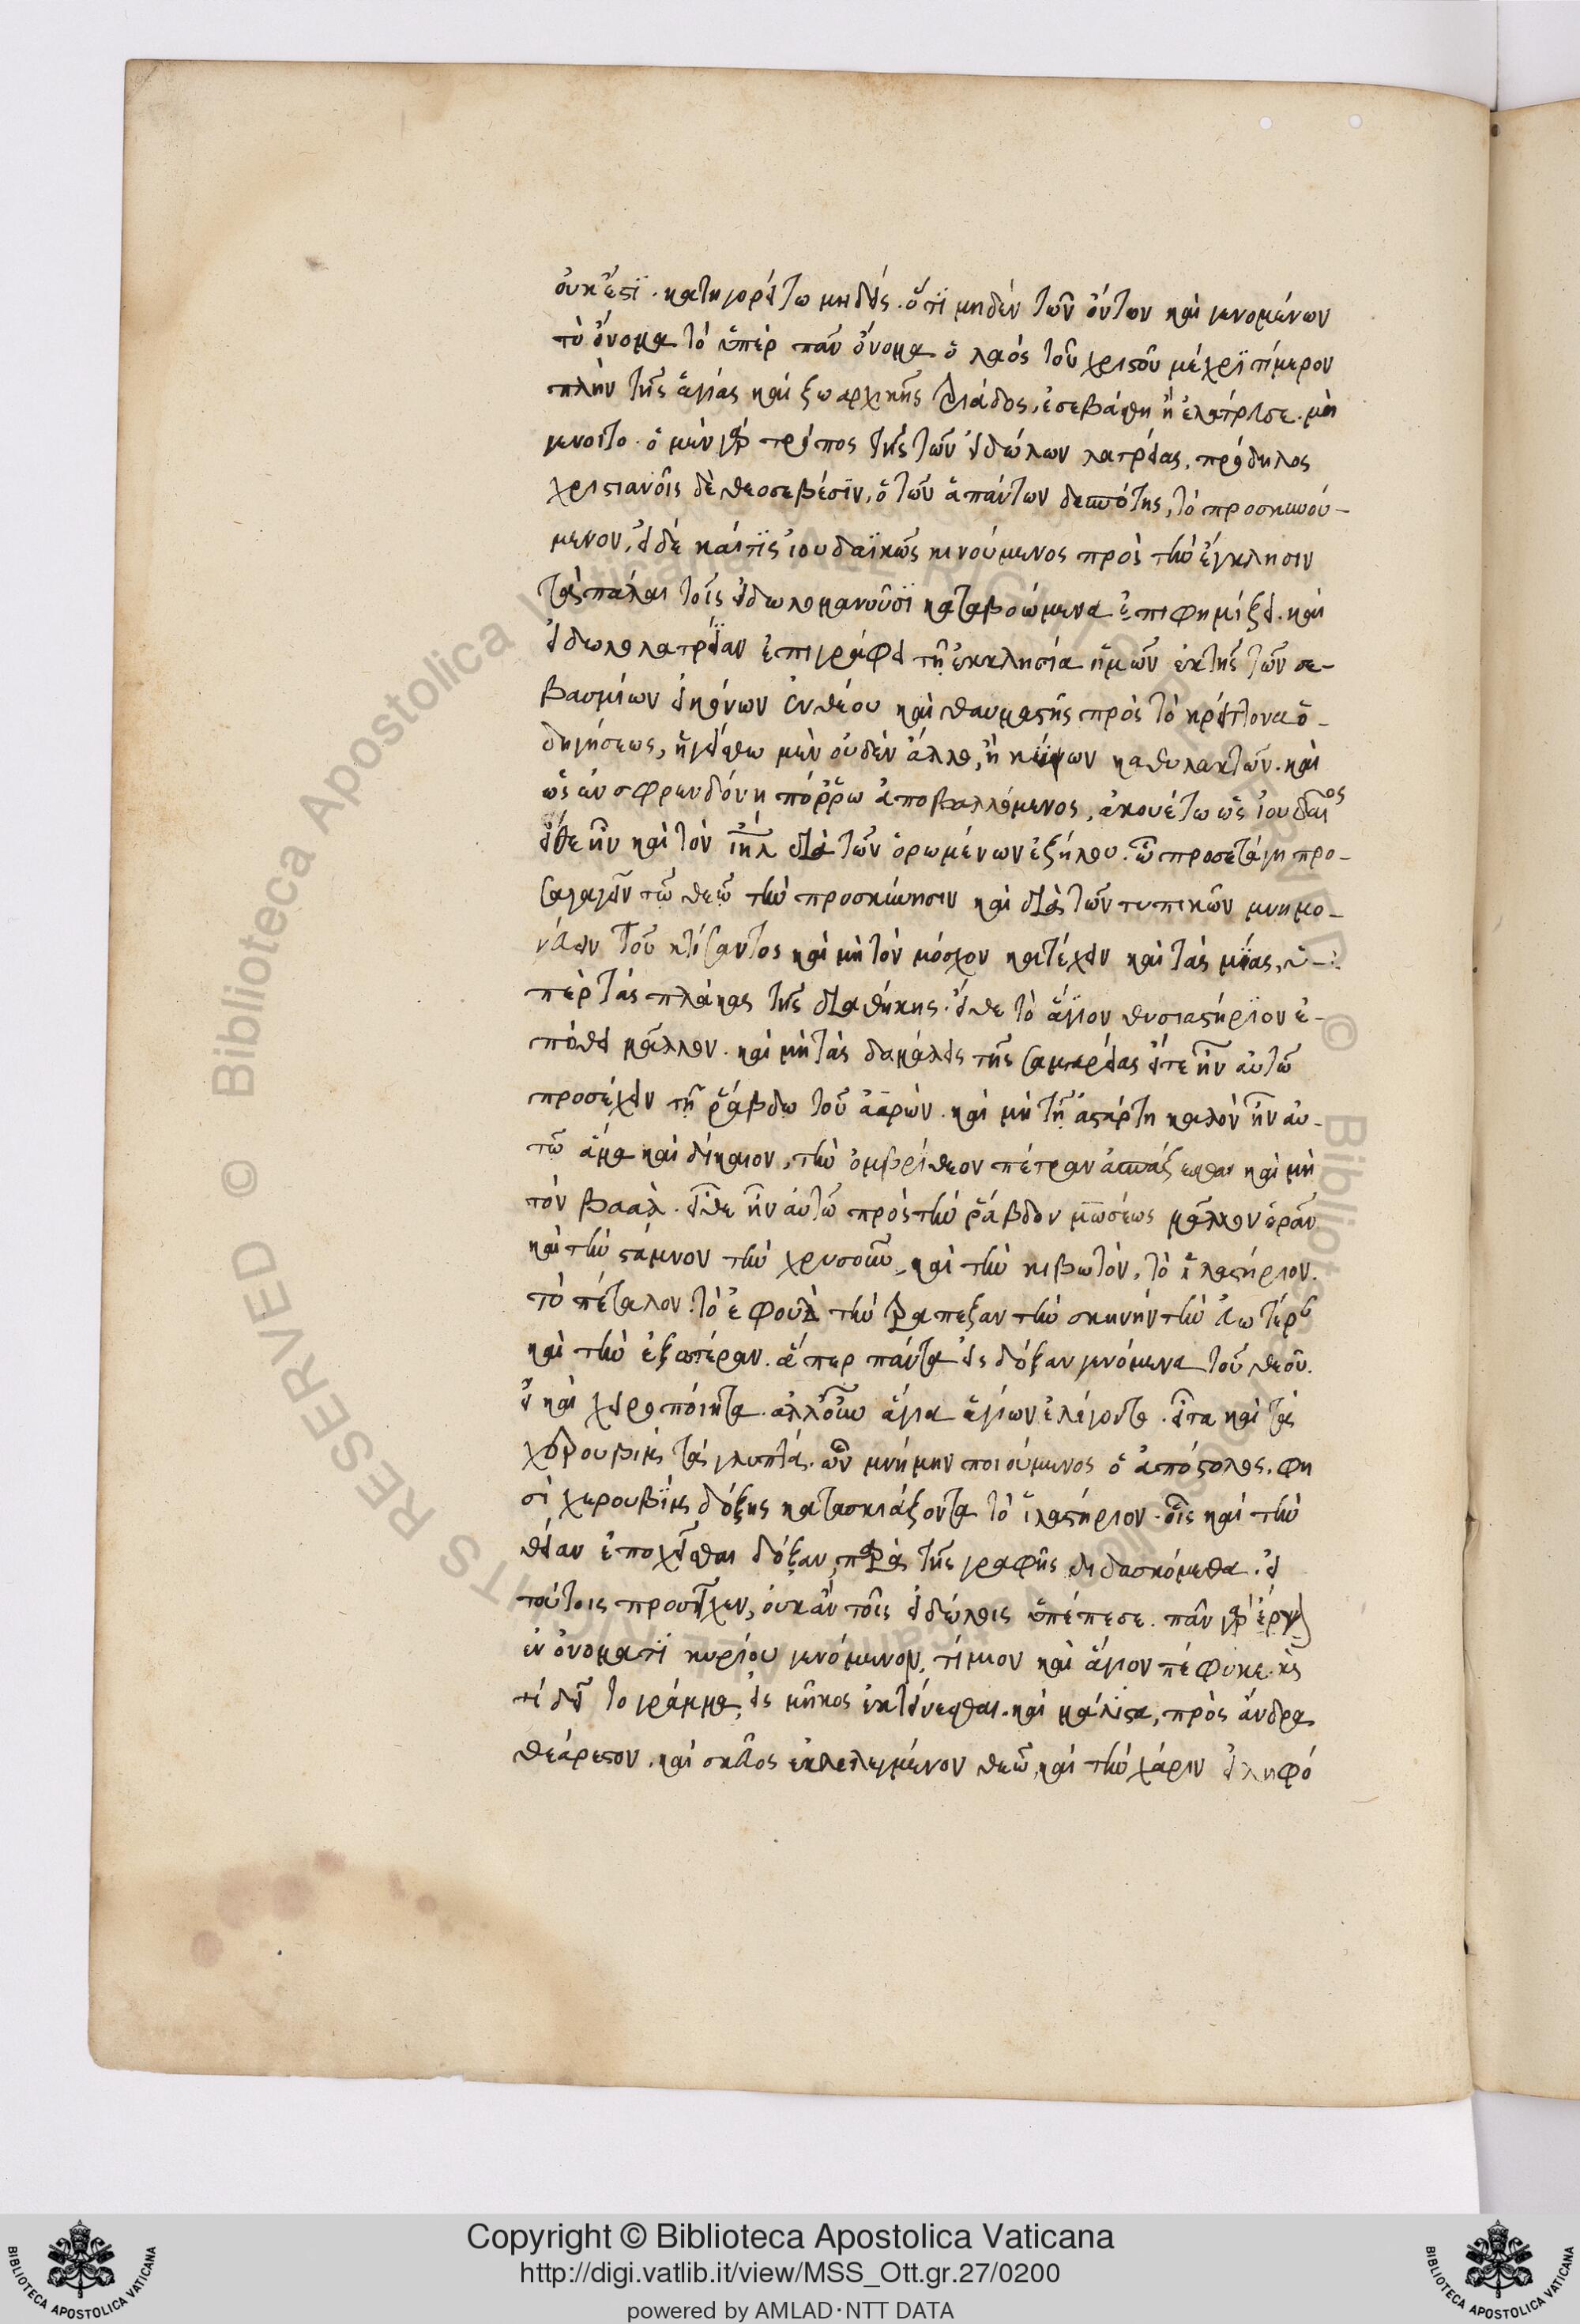 οὐκ ἔστι. κατηγορείτω μηδείς. ὅτι μηδὲν τῶν ὄντων καὶ γενομένων
τὸ ὄνομα τὸ ὑπὲρ πᾶν ὄνομα ὁ λαὸς τοῦ χριστοῦ μέχρι σήμερον
πλὴν τῆς ἁγίας καὶ ζωαρχικῆς τριάδος, ἐσεβάσθη ἢ ἐλάτρευσε. μὴ
γένοιτο. ὁ μὲν γὰρ τρόπος τῆς τῶν εἰδώλων λατρείας, πρόδηλος
χριστιανοῖς δὲ θεοσεβέσιν, ὁ τῶν ἁπάντων δεσπότης, τὸ προσκυνού-
μενον, εἰ δέ καί τις ἰουδαϊκῶς κινούμενος πρὸς τὴν ἔγκλησιν
τὰ πάλαι τοῖς εἰδωλομανοῦσι καταβοώμενα ἐπιφημίζει. καὶ
εἰδωλολατρείαν ἐπιγράφει τῇ ἐκκλησίᾳ ἡμῶν ἐκ τῆς τῶν σε-
βασμίων εἰκόνων ἐνθέου καὶ θαυμαστῆς πρὸς τὸ κρεῖττον ὁ-
δηγήσεως, ἡγείσθω μὲν οὐδὲν ἄλλο, ἢ καθυλακτῶν. καὶ
ὡς ἐν σφενδόνη πόρρω ἀποβαλλόμενος, ἀκουέτω ὡς ἰουδαῖος
εἴθε ἦν καὶ τὸν ἰηλ διὰ τῶν ὁρωμένων ἐξ ὧν προσετάγη προ-
σαγαγεῖν τῷ θεῷ τὴν προσκύνησιν καὶ διὰ τῶν τυπικῶν μνημο-
νεύειν τοῦ κτίσαντος καὶ μὴ τὸν μόσχον κατέχειν καὶ τὰς μυίας, ὑ-
πὲρ τὰς πλάκας τῆς διαθήκης. εἴθε τὸ ἅγιον θυσιαστήριον ἐ-
πόθει μᾶλλον. καὶ μὴ τὰς δαμάλεις τῆς σαμαρείας εἴτε ἦν αὐτῷ
προσέχειν τῇ ῥάβδῳ τοῦ ἀαρὼν. καὶ μὴ τῇ ἀστάρτῃ καλὸν ἦν αὐ-
τῷ ἅμα καὶ δίκαιον, τὴν ὀμβρίθεον πέτραν ἀσπάζεσθαι καὶ μὴ
τὸν βαάλ. εἴθε ἦν αὐτῷ πρὸς τὴν ῥάβδον μωσέως μᾶλλον ὁρᾶν
καὶ τὴν στάμνον τὴν χρυσοῦν, καὶ τὴν κιβωτόν, τὸ ἱλαστήριον.
τὸ πέταλον. τὸ ἐφοὺδ τὴν τράπεζαν τὴν σκηνὴν τὴν ἐσωτέρω
καὶ τὴν ἐξωτέραν. ἅπερ πάντα εἰς δόξαν γενόμενα τοῦ θεοῦ.
εἰ καὶ χειροποίητα. ἀλλ᾽ οὖν ἅγια ἁγίων ἐλέγοντο. εἶτα καὶ τὰ
χερουβὶμ τὰ γλυπτά. ὧν μνήμην ποιούμενος ὁ ἀπόστολος. φη
σὶ χερουβὶμ δόξης κατασκιάζοντα τὸ ἱλαστήριον. οἷς καὶ τὴν
θείαν ἐποχεῖσθαι δόξαν, παρὰ τῆς γραφῆς διδασκόμεθα. εἰ
τούτοις προσεῖχεν, οὐκ ἂν τοῖς εἰδώλοις ὑπέπεσε. πᾶν γὰρ ἔργον
ἐν ὀνόματι κυρίου γενόμενον, τίμιον καὶ ἅγιον πέφυκε. καὶ
τί δεῖ τὸ γράμμα, εἰς μῆκος ἐκτείνεσθαι. καὶ μάλιστα, πρὸς ἄνδρα
θεάρεστον. καὶ σκεῦος ἐκλελεγμένον θεῷ, καὶ τὴν χάριν εἰληφό
Copyright © Biblioteca Apostolica Vaticana
http://digi.vatlib.it/view/MSS_Ott.gr.27/0200
powered by AMLAD·NTT DATA